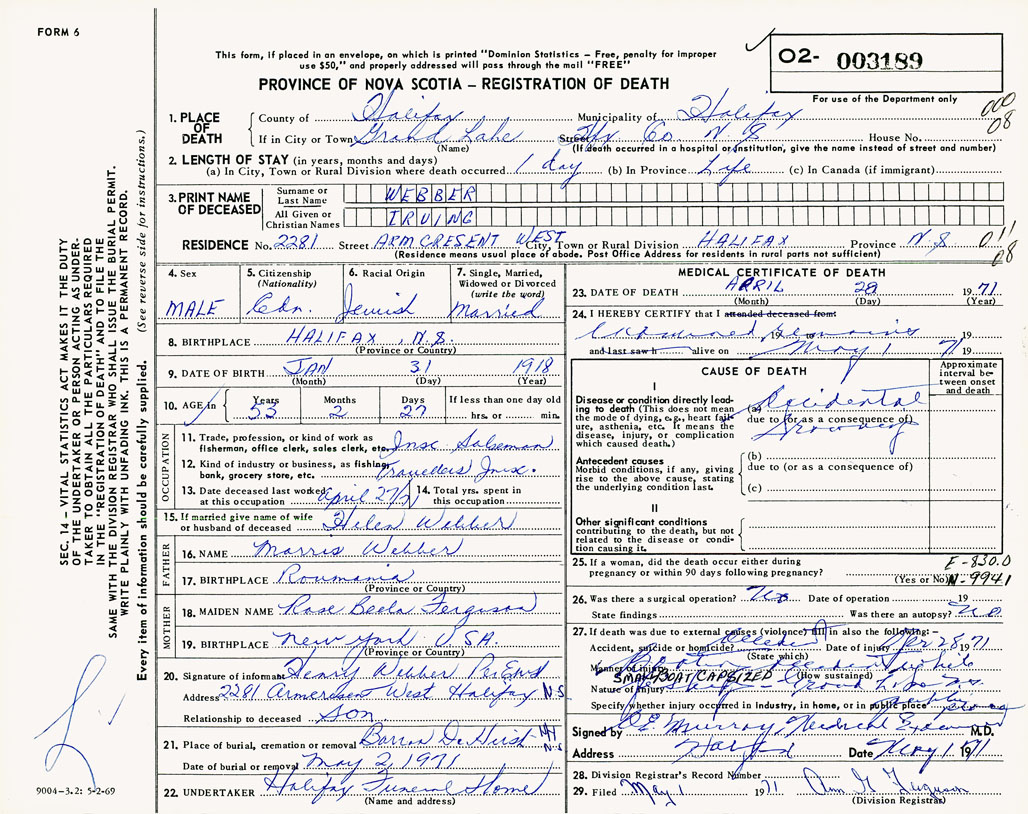 FORM 6
This form, if placed in an envelope, on which is printed "Dominion Statistics – Free, penalty for improper
use $50," and properly addressed will pass through the mail "FREE"
PROVINCE OF NOVA SCOTIA – REGISTRATION OF DEATH
O2- 003189
For use of the Department only
000
08
1. PLACE OF DEATH
County of Halifax Municipality of Halifax
If in City or Town Grand Lake Street Hfx Co N S House No.
(Name) (If death occurred in a hospital or institution, give the name instead of street and number)
2. LENGTH OF STAY (in years, months and days)
(a) In City, Town or Rural Division where death occurred 1 day (b) In Province Life (c) In Canada (if immigrant)
3. PRINT NAME OF DECEASED
Surname or Last Name WEBBER
All Given or Christian Names IRVING
RESIDENCE No. 2281 Street ARMCRESENT WEST City, Town or Rural Division HALIFAX Province N S
(Residence means usual place of abode. Post Office Address for residents in rural parts not sufficient)
011
08
4. Sex
MALE
5. Citizenship
(Nationality)
Cdn.
6. Racial Origin
Jewish
7. Single, Married,
Widowed or Divorced
(write the word)
Married
8. BIRTHPLACE HALIFAX, N.S.
(Province or Country)
9. DATE OF BIRTH JAN 31 1918
(Month) (Day) (Year)
10. AGE in Years 53 Months 2 Days 27 If less than one day old
hrs. or min.
OCCUPATION
11. Trade, profession, or kind of work as
fisherman, office clerk, sales clerk, etc. Insc. Salseman
12. Kind of industry or business, as fishing,
bank, grocery store, etc. Travellers Insc.
13. Date deceased last worked
at this occupation April 27/71
14. Total yrs. spent in
this occupation
15. If married give name of wife
or husband of deceased Helen Webber
FATHER
16. NAME Morris Webber
17. BIRTHPLACE Roumania
(Province or Country)
MOTHER
18. MAIDEN NAME Rose Beela Ferguson
19. BIRTHPLACE New York USA.
(Province or Country)
20. Signature of informant Henry Webber
Address 2281 Armcresen West Halifax N-S
Relationship to deceased Son
21. Place of burial, cremation or removal Barron De Hirsh
N-S
Date of burial or removal May 2, 1971
22. UNDERTAKER Halifax Funeral Home
(Name and address)
MEDICAL CERTIFICATE OF DEATH
23. DATE OF DEATH APRIL 28 1971
(Month) (Day) (Year)
24. I HEREBY CERTIFY that I attended deceased from
Examined remains 19 19
and last saw h alive on May 1 71 19
CAUSE OF DEATH
Approximate interval between onset and death
I
Disease or condition directly lead-
ing to death (This does not mean
the mode of dying, e.g., heart fail-
ure, asthenia, etc. It means the
disease, injury, or complication
which caused death.)
(a) Accidental
due to (or as a consequence of)
Drowning
Antecedent causes
Morbid conditions, if any, giving
rise to the above cause, stating
the underlying condition last.
(b)
due to (or as a consequence of)
(c)
II
Other significant conditions
contributing to the death, but not
related to the disease or condi-
tion causing it.
25. If a woman, did the death occur either during
pregnancy or within 90 days following pregnancy?
(Yes or No)
E-830.0
N-9941
26. Was there a surgical operation? No Date of operation 19
State findings Was there an autopsy? No
27. If death was due to external causes (violence) fill in also the following: –
Accident, suicide or homicide? Accident Date of injury Apr 28 1971
(State which)
Manner of injury Boating Accident
SMALL BOAT CAPSIZED (How sustained)
Nature of injury
Specify whether injury occurred in industry, in home, or in public place
Signed by Murray, Medical M.D.
Address Halifax Date May 1 1971
28. Division Registrar's Record Number
29. Filed May 1 1971 Ann G Ferguson
(Division Registrar)
SEC. 14 – VITAL STATISTICS ACT MAKES IT THE DUTY
OF THE UNDERTAKER OR PERSON ACTING AS UNDER-
TAKER TO OBTAIN ALL THE PARTICULARS REQUIRED
IN THE "REGISTRATION OF DEATH" AND TO FILE THE
SAME WITH THE DIVISION REGISTRAR WHO SHALL ISSUE THE BURIAL PERMIT.
WRITE PLAINLY WITH UNFADING INK. THIS IS A PERMANENT RECORD.
Every item of information should be carefully supplied. (See reverse side for instructions.)
9004-3.2: 5-2-69